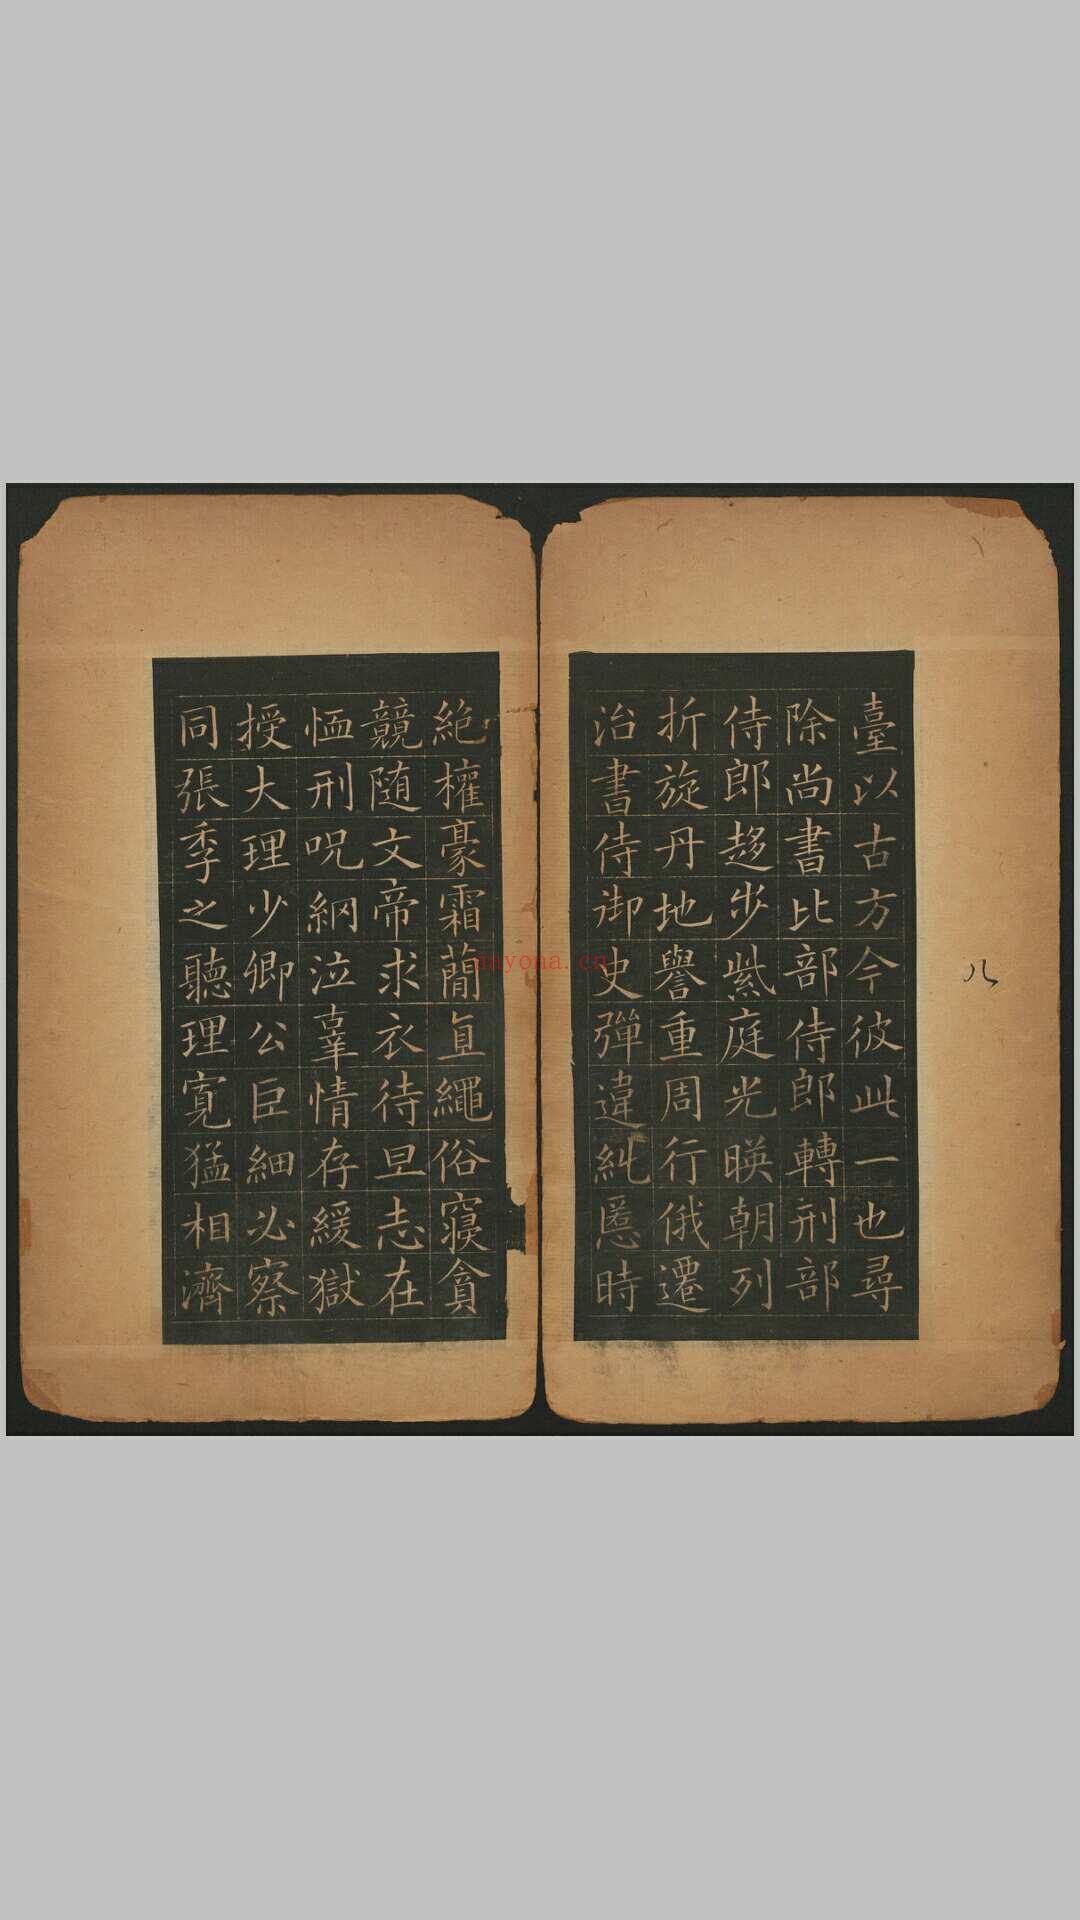 臺以古方今彼此一也尋
除尚書比部侍郎轉刑部
侍郎趍步紫庭光暎朝列
折旋丹地譽重周行俄遷
治書侍御史彈違糺慝時
絕權豪霜蕳直繩俗寢貪
競随文帝求衣待旦志在
恤刑呪網泣辜情存緩獄
授大理少卿公巨細必察
同張季之聽理寬猛相濟
八
nnyona.cn